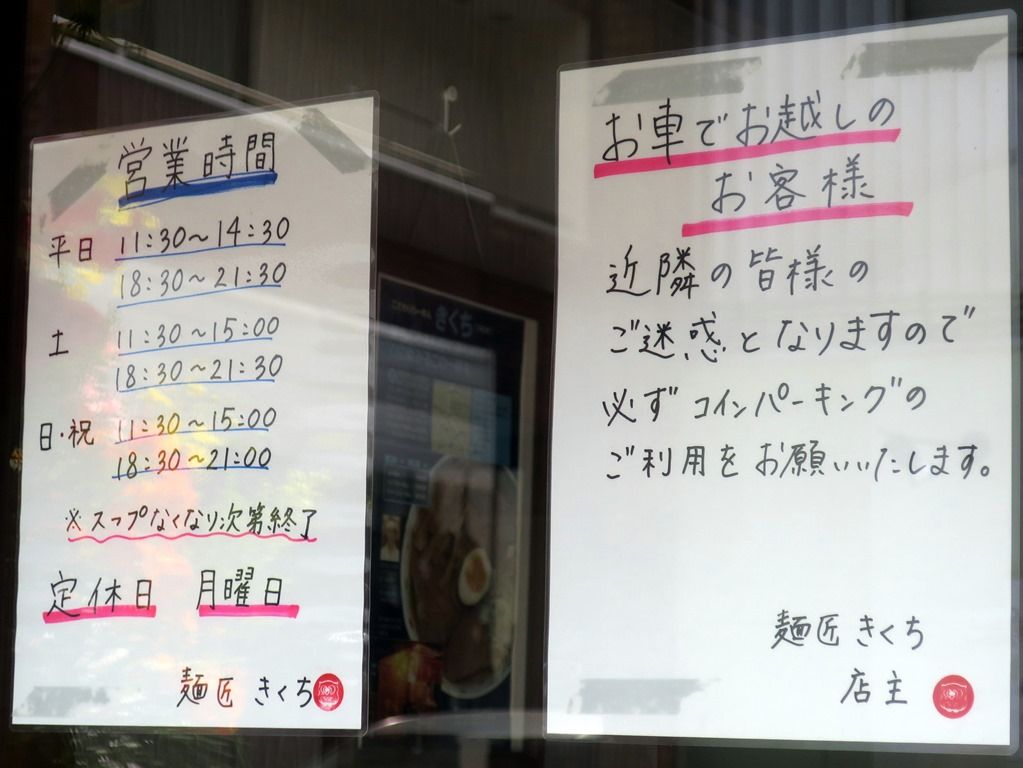 営業時間
平日 11:30～14:30
18:30～21:30
土 11:30～15:00
18:30～21:30
日・祝 11:30～15:00
18:30～21:00
※スープなくなり次第終了
定休日 月曜日
麺匠 きくち
お車でお越しの
お客様
近隣の皆様の
ご迷惑となりますので
必ずコインパーキングの
ご利用をお願いいたします。
麺匠きくち
店主
きくち